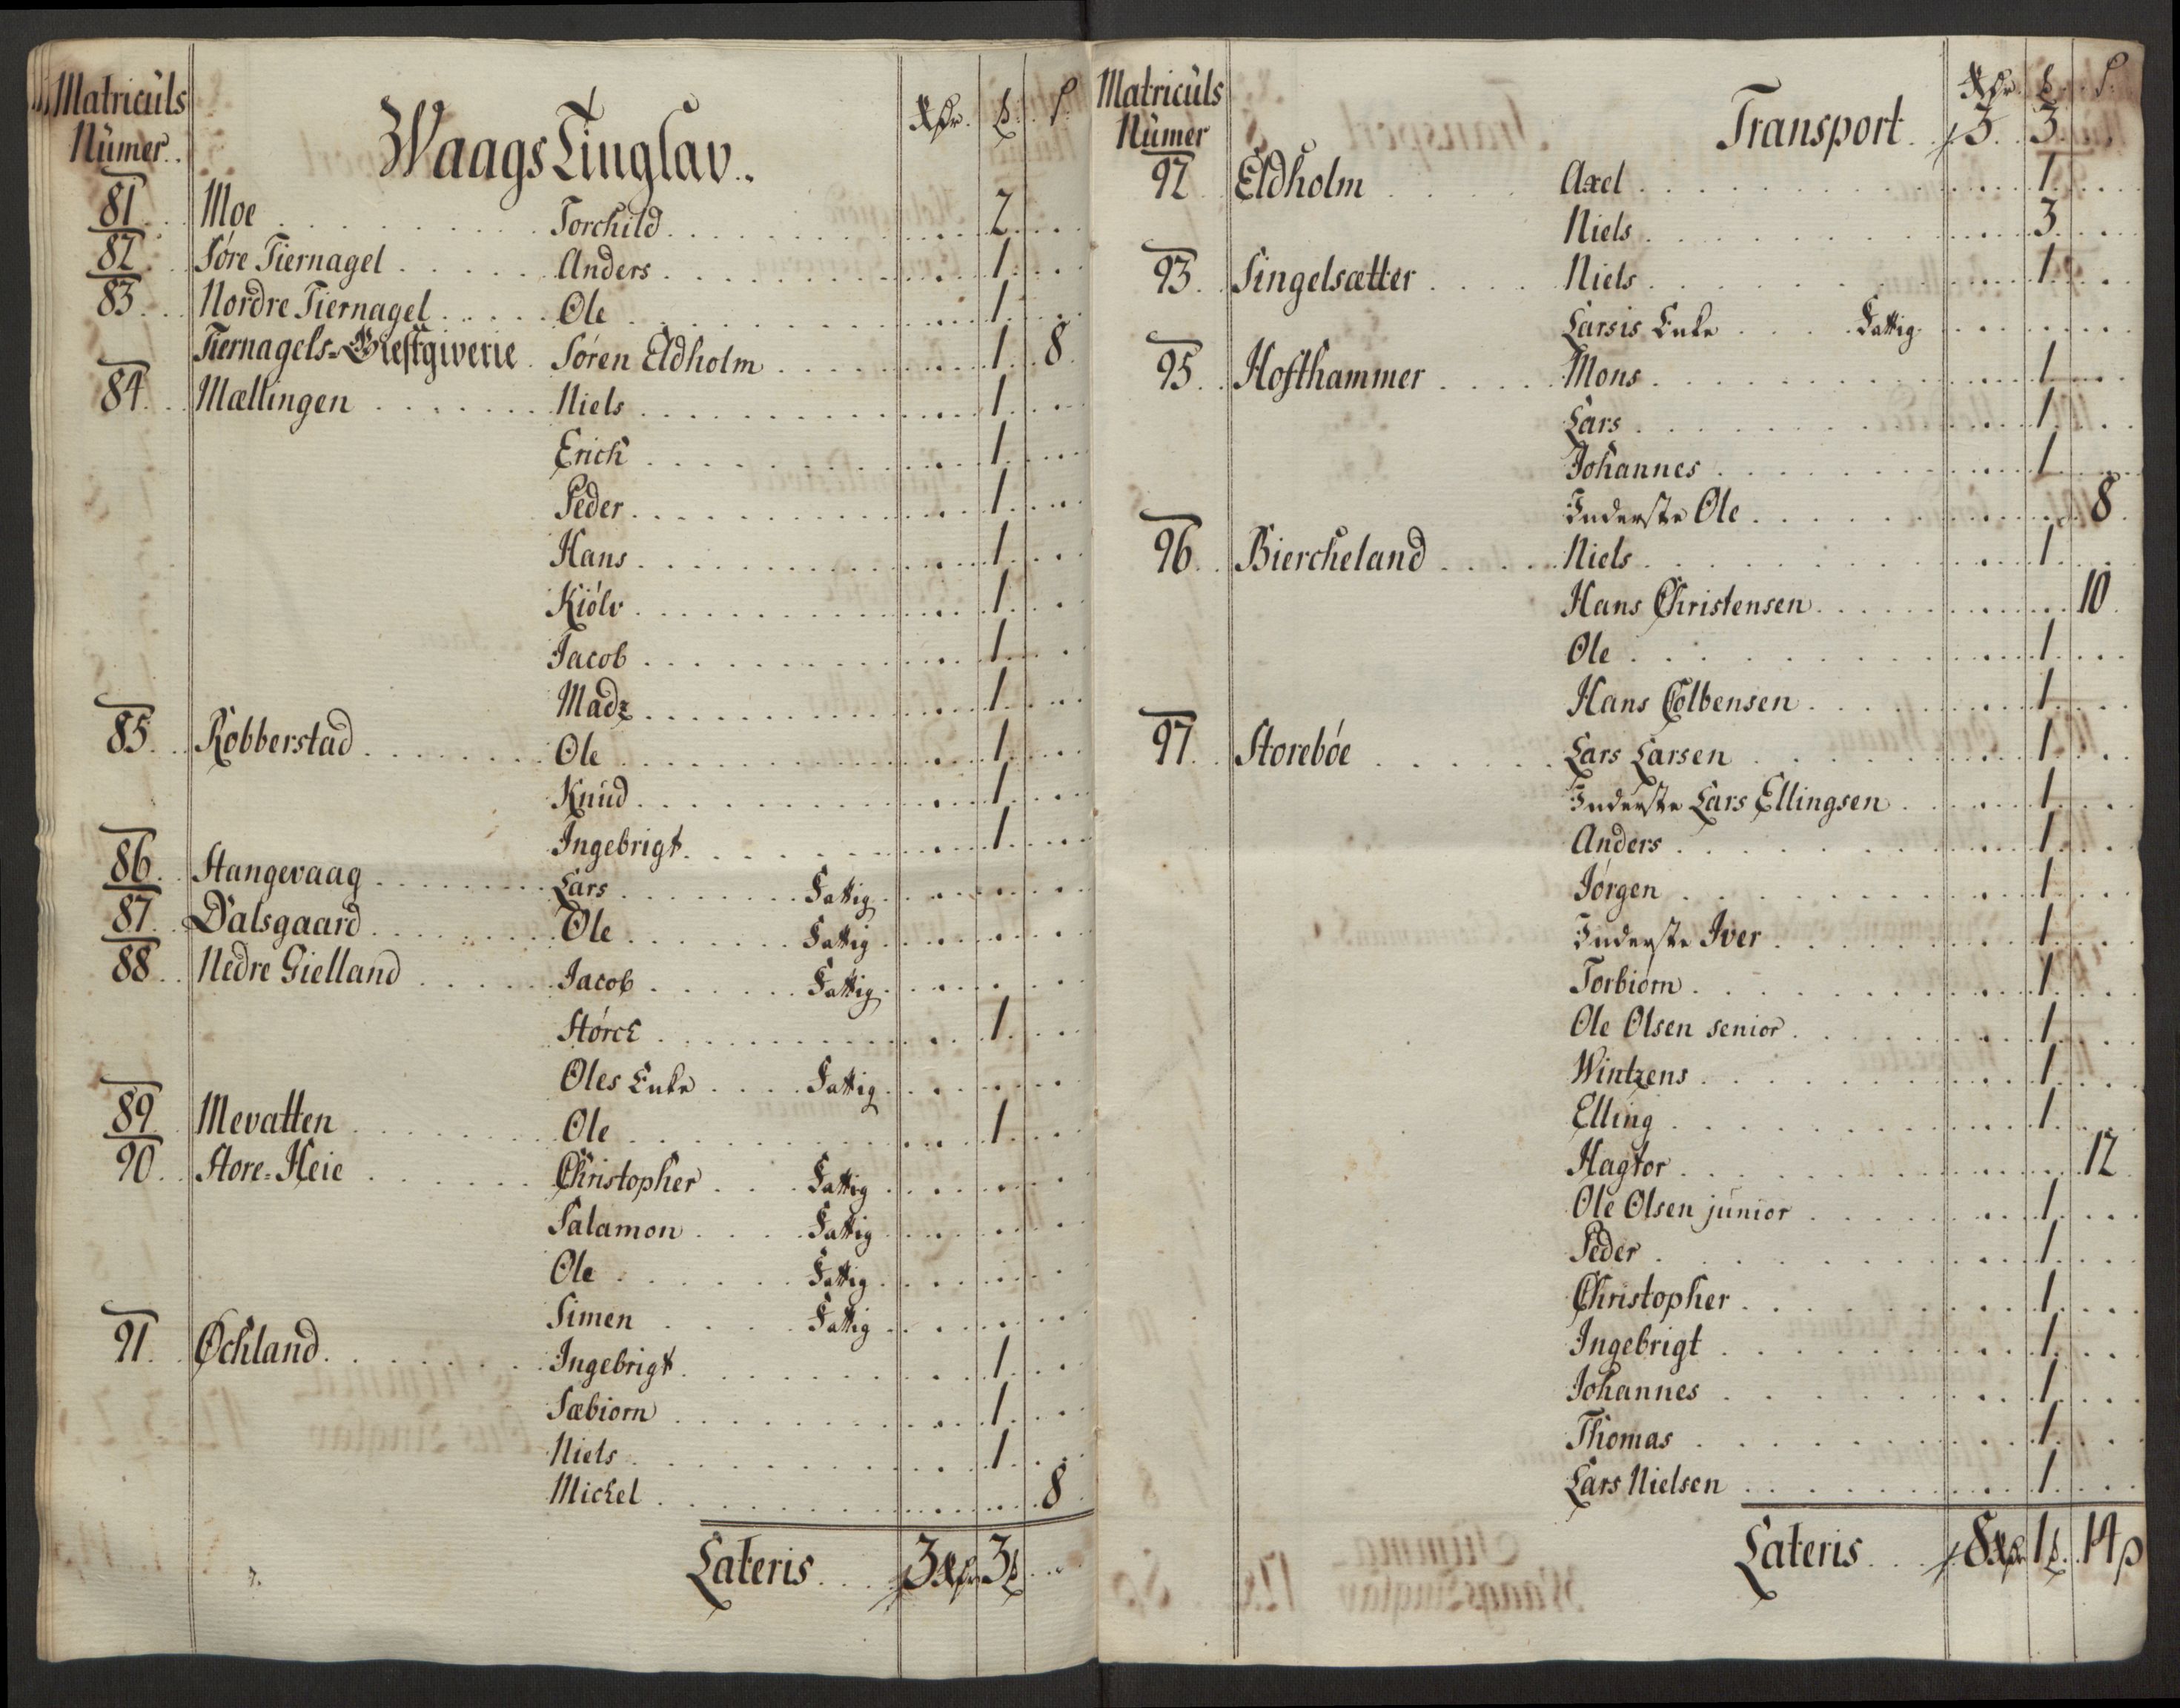 Matriculs
Numer.
Waags Tinglav.
Rdr. ℔. ß.
81. Moe Torchild 2
82. Søre Tiernagel Anders 1
83. Nordre Tiernagel Ole 1
Tiernagels-Giestgiverie Søren Eldholm 1 8
84. Mællingen Niels 1
Erich 1
Peder 1
Hans 1
Kiølv 1
Jacob 1
Madz 1
85. Robberstad Ole 1
Knud 1
Ingebrigt 1
86. Stangevaag Lars Fattig
87. Dalsgaard Ole Fattig
88. Nedre Gielland Jacob Fattig
Størck 1
Oles Enke Fattig
89. Mevatten Ole 1
90. Store-Heie Christopher Fattig
Salamon Fattig
Ole Fattig
Simen Fattig
91. Øchland Ingebrigt 1
Sæbiorn 1
Niels 1
Mickel 8
Lateris 3 Rdr 3 ℔
Matriculs
Numer
Rdr. ℔. ß.
Transport 3 3
92 Eldholm Axel 1
Niels 3
93. Singelsætter Niels 1
Larsis Enke Fattig
95. Hofthammer Mons 1
Lars 1
Johannes 1
Inderste Ole 8
96. Biercheland Niels 1
Hans Christensen 10
Ole 1
Hans Colbensen 1
97. Storebøe Lars Larsen 1
Inderste Lars Ellingsen 1
Anders 1
Jørgen 1
Inderste Iver 1
Torbiørn 1
Ole Olsen senior 1
Wintzens 1
Elling 1
Hagtor 12
Ole Olsen junior 1
Peder 1
Christopher 1
Ingebrigt 1
Johannes 1
Thomas 1
Lars Nielsen 1
Lateris 8 Rdr 1 ℔ 14 ß